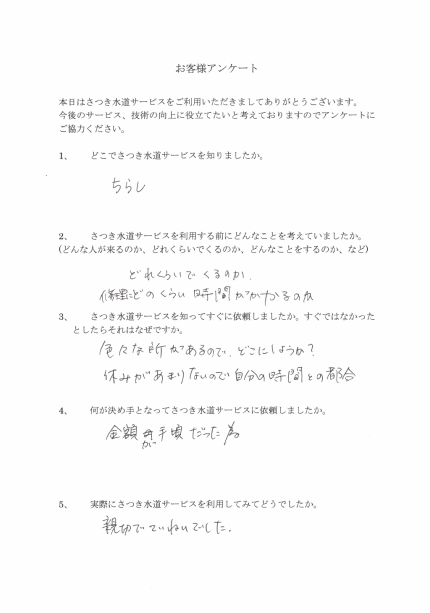 お客様アンケート
本日はさつき水道サービスをご利用いただきましてありがとうございます。
今後のサービス、技術の向上に役立てたいと考えておりますのでアンケートに
ご協力ください。
1、 どこでさつき水道サービスを知りましたか。
ちらし
2、 さつき水道サービスを利用する前にどんなことを考えていましたか。
(どんな人が来るのか、どれくらいでくるのか、どんなことをするのか、など)
どれくらいでくるのか、
修理にどのくらい時間がかかるのか
3、 さつき水道サービスを知ってすぐに依頼しましたか。すぐではなかった
としたらそれはなぜですか。
色々な所があるので、どこにしようか?
休みがあまりないので自分の時間との都合
4、 何が決め手となってさつき水道サービスに依頼しましたか。
金額が手頃だった為
5、 実際にさつき水道サービスを利用してみてどうでしたか。
親切でていねいでした。